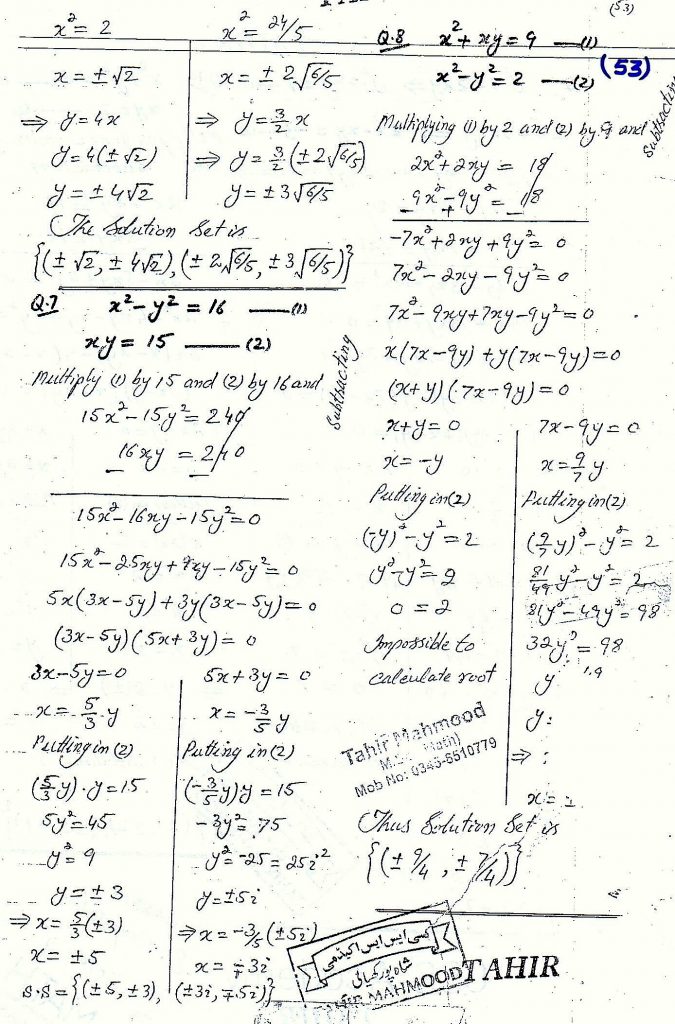 (53)
x² = 2
x² = 24/5
x = ± √2
x = ± 2√6/5
⇒ y = 4x
⇒ y = 3/2 x
y = 4(± √2)
⇒ y = 3/2 (± 2√6/5)
y = ± 4√2
y = ± 3√6/5
The Solution Set is
{(± √2, ± 4√2), (± 2√6/5, ± 3√6/5)}
Q.7 x² - y² = 16 —(1)
xy = 15 —(2)
Multiply (1) by 15 and (2) by 16 and Subtracting
15x² - 15y² = 240
16xy = 240
15x² - 16xy - 15y² = 0
15x² - 25xy + 9xy - 15y² = 0
5x(3x - 5y) + 3y(3x - 5y) = 0
(3x - 5y)(5x + 3y) = 0
3x - 5y = 0
x = 5/3 y
Putting in (2)
(5/3 y) · y = 15
5y² = 45
y² = 9
y = ± 3
⇒ x = 5/3 (± 3)
x = ± 5
5x + 3y = 0
x = - 3/5 y
Putting in (2)
(- 3/5 y) y = 15
- 3y² = 75
y² = -25 = 25i²
y = ± 5i
⇒ x = -3/5 (± 5i)
x = ∓ 3i
S.S = {(± 5, ± 3), (± 3i, ∓ 5i)}
Q.8 x² + xy = 9 —(1)
x² - y² = 2 —(2)
(53)
Multiplying (1) by 2 and (2) by 9 and Subtracting
2x² + 2xy = 18
9x² - 9y² = 18
- + -
-7x² + 2xy + 9y² = 0
7x² - 2xy - 9y² = 0
7x² - 9xy + 7xy - 9y² = 0
x(7x - 9y) + y(7x - 9y) = 0
(x + y)(7x - 9y) = 0
x + y = 0
x = -y
Putting in (2)
(-y)² - y² = 2
y² - y² = 2
0 = 2
Impossible to
calculate root
7x - 9y = 0
x = 9/7 y
Putting in (2)
(9/7 y)² - y² = 2
81/49 y² - y² = 2
81y² - 49y² = 98
32y² = 98
y
y =
⇒
x =
Tahir Mahmood
Mob No: 0345-6510779
Thus Solution Set is
{(± 9/4, ± 7/4)}
سی ایس ایس اکیڈمی
TAHIR MAHMOOD
TAHIR